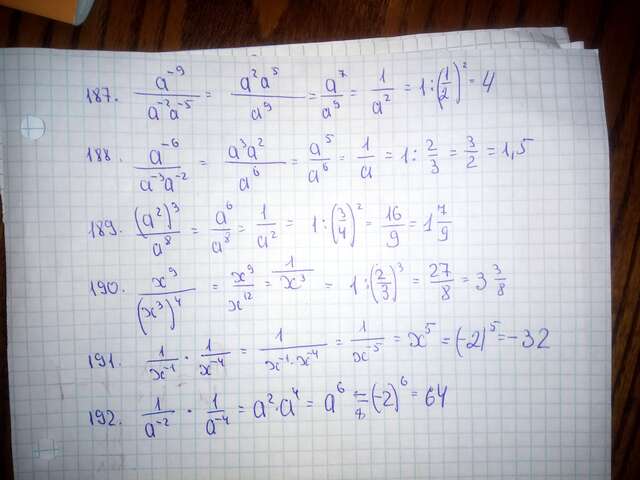 187. a⁻⁹/(a⁻²a⁻⁵) = a²a⁵/a⁹ = a⁷/a⁹ = 1/a² = 1:(1/2)² = 4
188. a⁻⁶/(a⁻³a⁻²) = a³a²/a⁶ = a⁵/a⁶ = 1/a = 1: 2/3 = 3/2 = 1,5
189. (a²)³/a⁸ = a⁶/a⁸ = 1/a² = 1:(3/4)² = 16/9 = 1 7/9
190. x⁹/(x³)⁴ = x⁹/x¹² = 1/x³ = 1:(2/3)³ = 27/8 = 3 3/8
191. 1/x⁻¹ · 1/x⁻⁴ = 1/(x⁻¹·x⁻⁴) = 1/x⁻⁵ = x⁵ = (-2)⁵ = -32
192. 1/a⁻² · 1/a⁻⁴ = a²a⁴ = a⁶ = (-2)⁶ = 64